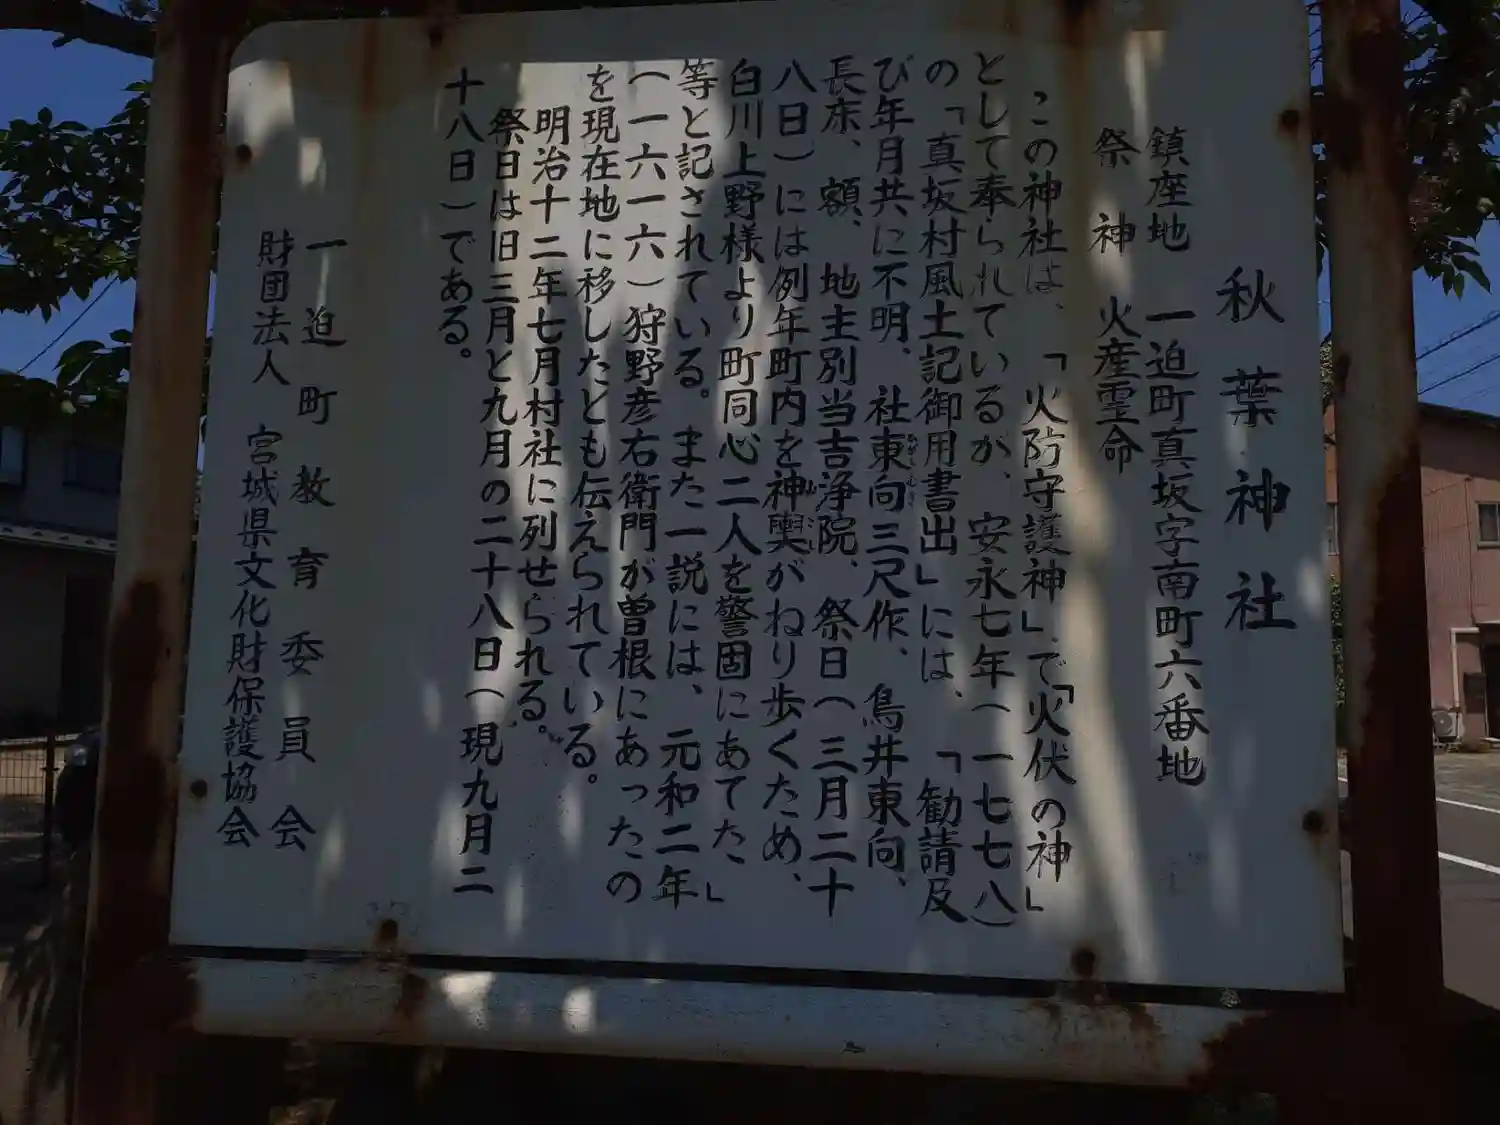 秋葉神社
鎮座地　一迫町真坂字南町六番地
祭　神　火産霊命
この神社は、「火防守護神」で「火伏の神」
として奉られているが、安永七年(一七七八)
の「真坂村風土記御用書出」には、「勧請及
び年月共に不明、社東向三尺作、鳥井東向、
長床、額、地主別当吉浄院、祭日(三月二十
八日)には例年町内を神輿がねり歩くため、
白川上野様より町同心二人を警固にあてた、」
等と記されている。また一説には、元和二年
(一六一六)狩野彦右衛門が曽根にあったの
を現在地に移したとも伝えられている。
明治十二年七月村社に列せられる。
祭日は旧三月と九月の二十八日(現九月二
十八日)である。
一迫町教育委員会
財団法人　宮城県文化財保護協会